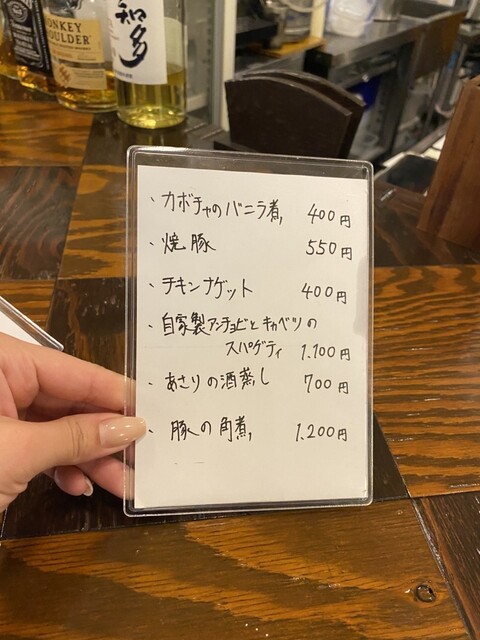 MONKEY
SHOULDER
知多
・カボチャのバニラ煮 400円
・焼豚 550円
・チキンナゲット 400円
・自家製アンチョビとキャベツの
スパゲティ 1.100円
・あさりの酒蒸し 700円
・豚の角煮 1.200円